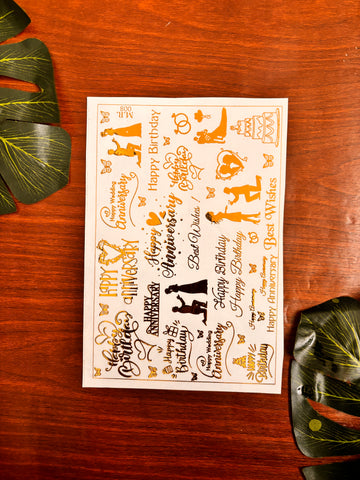 M.R.
008
Happy Birthday
Happy
Birthday
Happy Wedding
Anniversary
Happy
Anniversary
Best Wishes !
Best Wishes
HAPPY
ANNIVERSARY
HAPPY
ANNIVERSARY
Happy Birthday
Happy Birthday
Happy Anniversary
Happy Anniversary
Happy Anniversary
Happy
Birthday
Happy
Birthday
Happy Wedding
Anniversary
HAPPY
Birthday